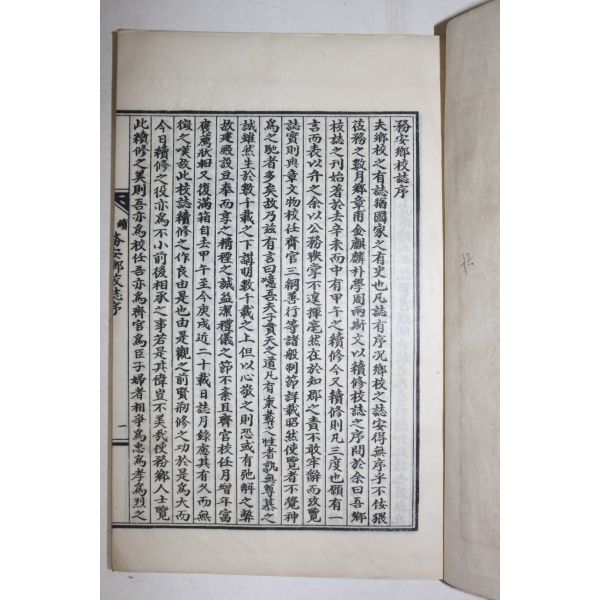 務安鄉校誌序
夫鄉校之有誌猶國家之有史也凡誌有序況鄉校之誌安得無序乎不佞猥
莅務之數月鄉章甫金麒麟朴學周兩斯文以續修校誌之序問於余曰吾鄉
校誌之刊始著於去辛未而中有甲午之續修今又續修則凡三度也願有一
言而表以弁之余以公務鞅掌不遑揮毫然在於知郡之責不敢牢辭而攷覽
誌實則典章文物校任齊官三綱善行等諸般判節詳載昭然使覽者不覺神
爲之馳者多矣故乃玆有言曰噫吾夫子貫天之道凡有秉彝之性者孰無尊慕之
誠雖然生於數千載之下講明數千載之上但以心敬之則恐或有弛解之弊
故建殿設豆奉而享之精禋之誠益潔禮儀之節不紊且齊官校任月增年富
褒薦狀輯又復滿箱自去甲午至今庚戌近二十載日誌月錄應其有久而無
徵之嘆故此校誌續修之作良由是也由是觀之前賢病修之功於是爲大而
今日續修之役亦爲不小前後相承之事若是其偉豈不美哉使務鄉人士覽
此續修之美則吾亦爲校任吾亦爲齊官爲臣子婦者相爭爲忠爲孝爲烈之
續
務安鄉校誌序
一